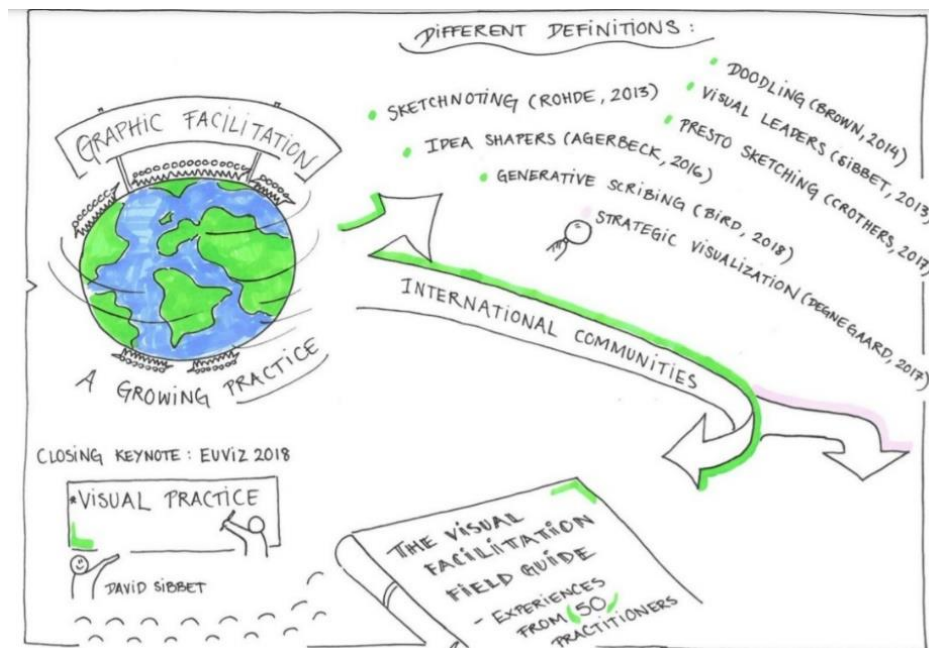 DIFFERENT DEFINITIONS:
GRAPHIC FACILITATION
A GROWING PRACTICE
SKETCHNOTING (ROHDE, 2013)
IDEA SHAPERS (AGERBECK, 2016)
GENERATIVE SCRIBING (BIRD, 2018)
STRATEGIC VISUALIZATION (DEGNEGAARD, 2017)
DOODLING (BROWN, 2014)
VISUAL LEADERS (SIBBET, 2013)
PRESTO SKETCHING (CROTHERS, 2017)
INTERNATIONAL COMMUNITIES
CLOSING KEYNOTE: EUVIZ 2018
*VISUAL PRACTICE
DAVID SIBBET
THE VISUAL
FACILITATION
FIELD GUIDE
- EXPERIENCES
FROM 50
PRACTITIONERS